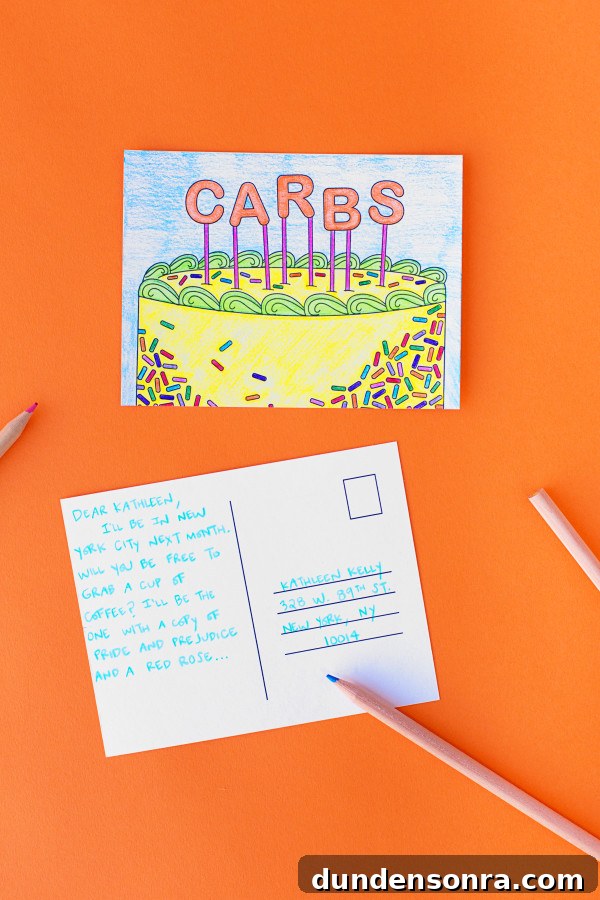 CARBS
DEAR KATHLEEN,
I'LL BE IN NEW
YORK CITY NEXT MONTH.
WILL YOU BE FREE TO
GRAB A CUP OF
COFFEE? I'LL BE THE
ONE WITH A COPY OF
PRIDE AND PREJUDICE
AND A RED ROSE...
KATHLEEN KELLY
328 W. 89TH ST.
NEW YORK, NY
10014
dundensonra.com